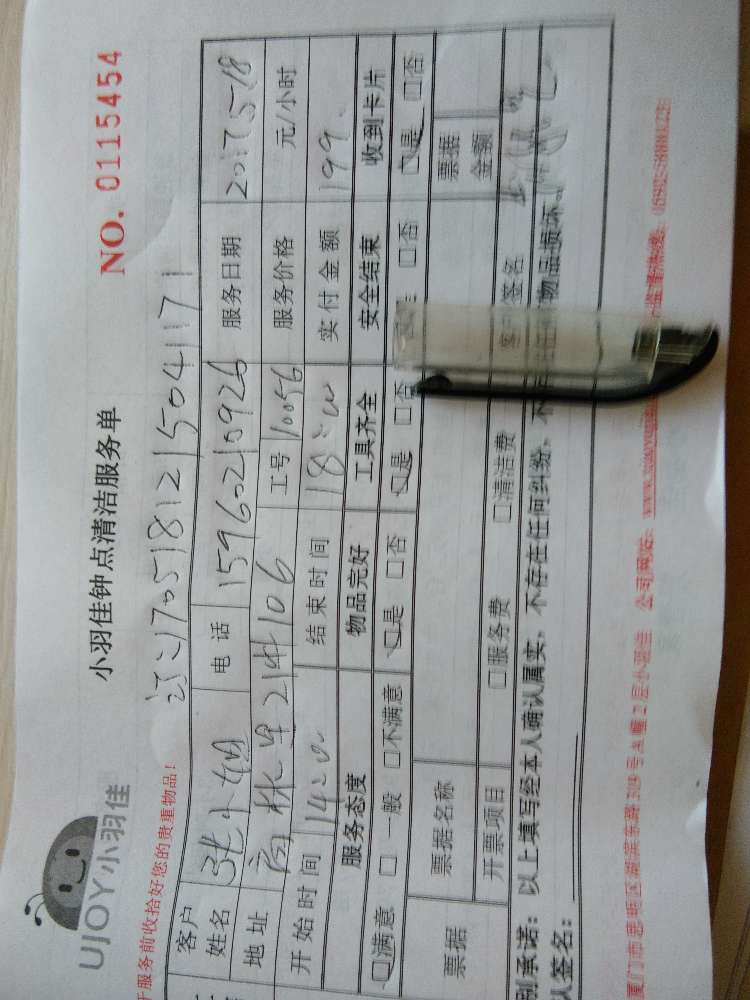 UJOY小羽佳
小羽佳钟点清洁服务单
NO. 0115454
服务前收拾好您的贵重物品!
1705181215041171
客户姓名 张小姐 电话 15960210926 服务日期 2017.5.18
地址 高林里21# 106 工号 10056 服务价格 元/小时
开始时间 14:00 结束时间 18:00 实付金额 199.
服务态度 物品完好 工具齐全 安全结束 收到卡片
□满意 □一般 □不满意 □是 □否 □是 □否 □否 □是 □否
票据 票据名称 票据金额
开票项目 □服务费 □清洁费 签名
别承诺: 以上填写经本人确认属实, 不存在任何纠纷, 物品损坏
人签名:
厦门市思明区湖滨东路 号 幢2层小羽佳 公司网站: